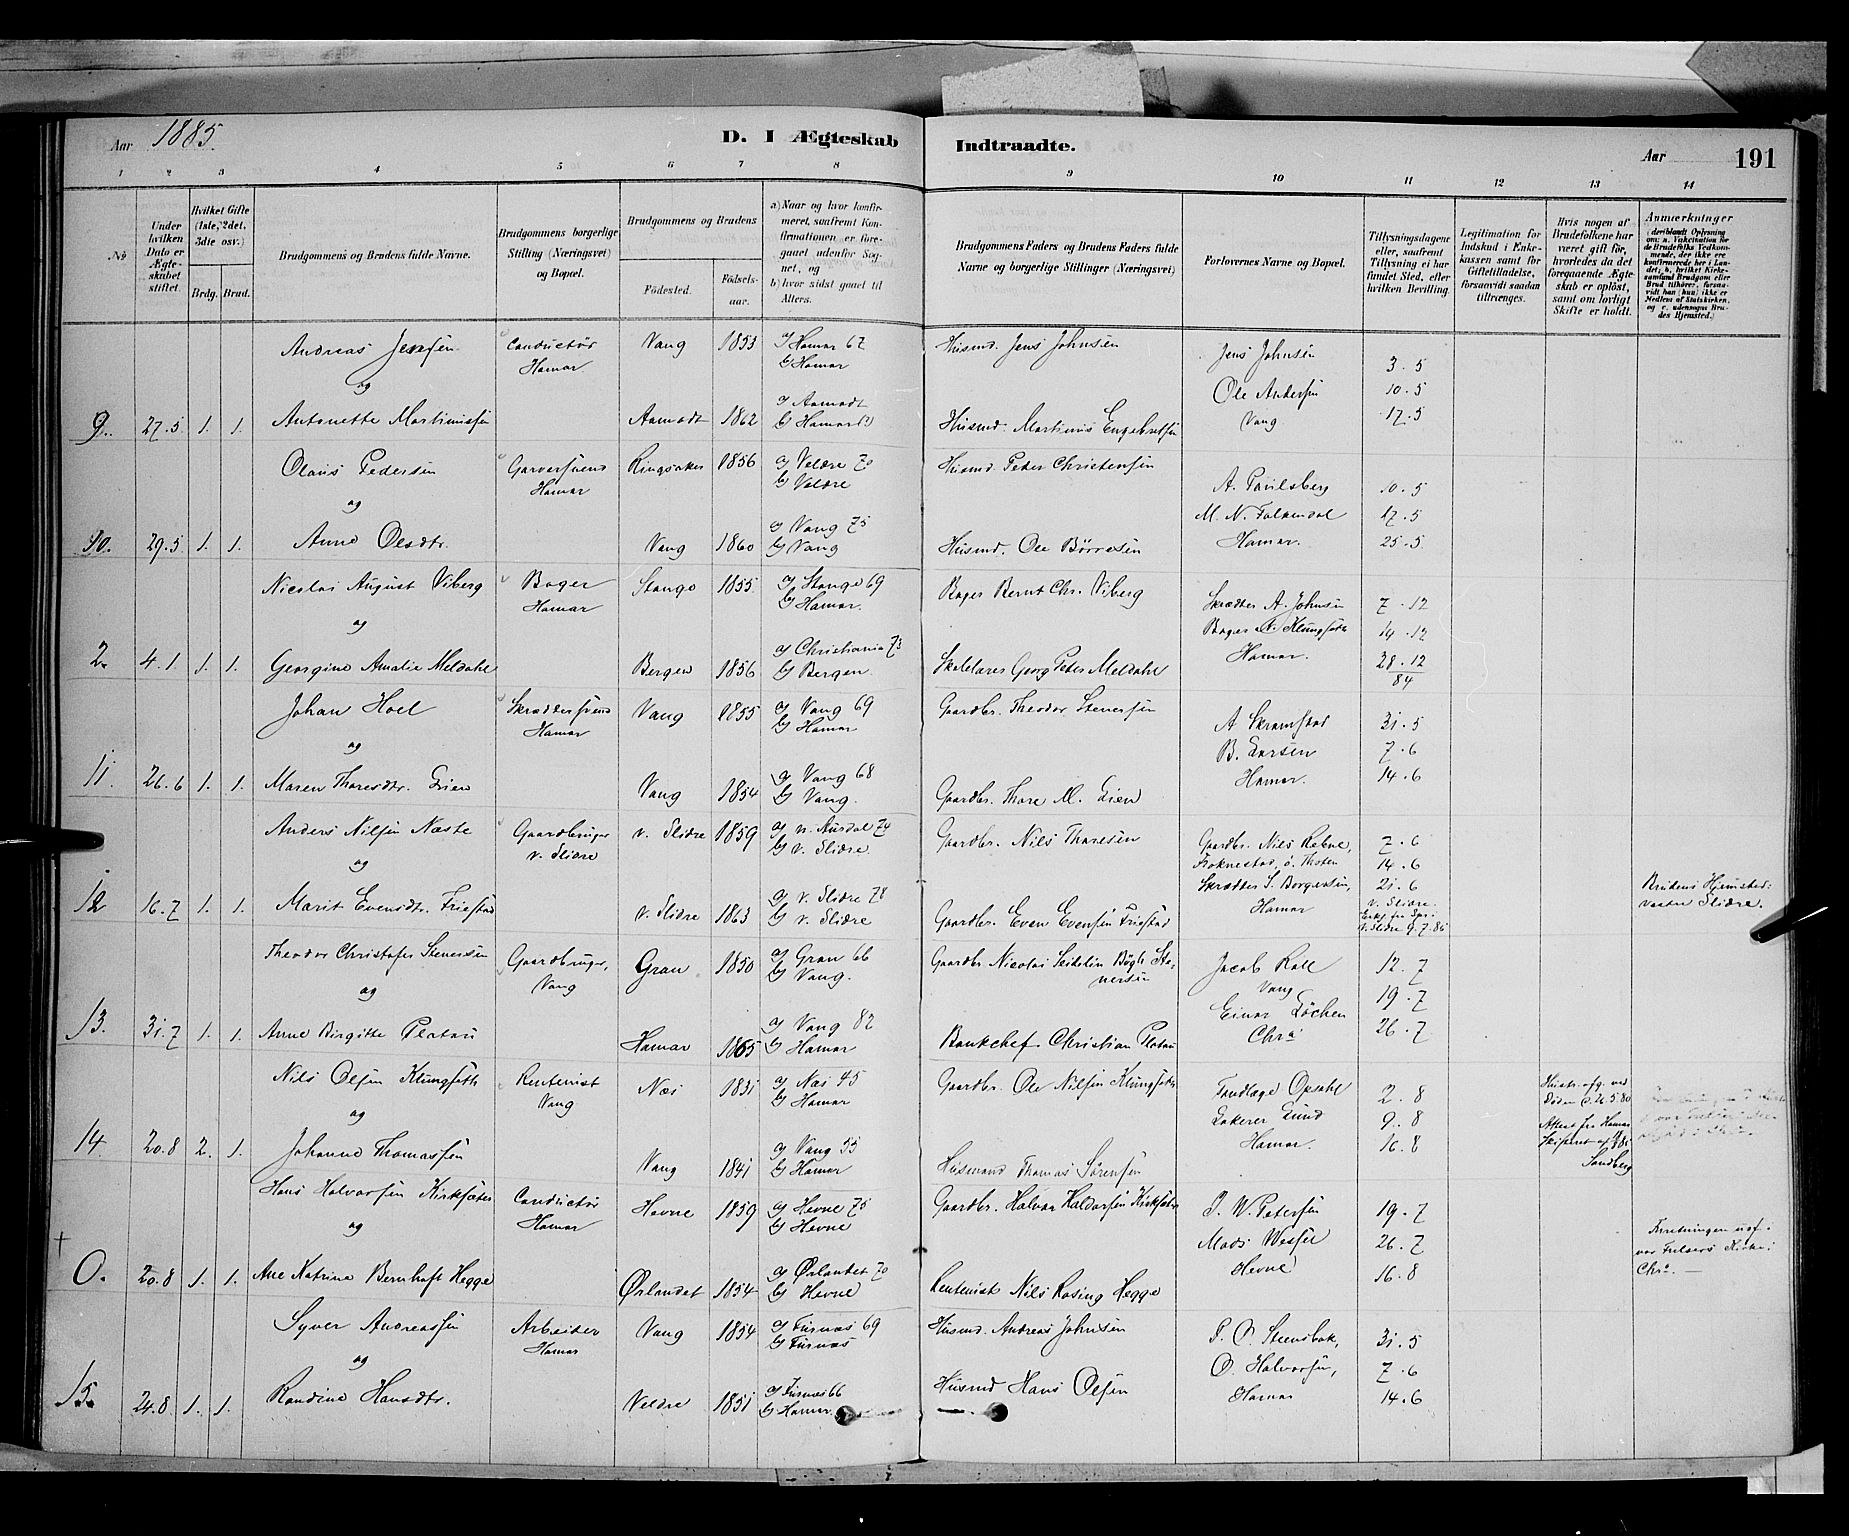 Aar 1885.
D. I Ægteskab Indtraadte.
Aar 191
1 2 3 4 5 6 7 8 9 10 11 12 13 14
No
Under hvilken Dato er Ægteskabet stiftet.
Hvilket Gifte (1ste, 2det, 3die osv.)
Brdg. Brud.
Brudgommens og Brudens fulde Navne.
Brudgommens borgerlige Stilling (Næringsvei) og Bopæl.
Brudgommens og Brudens
Fødested. Fødselsaar.
a) Naar og hvor konfirmeret, saafremt Konfirmationen er foregaaet udenfor Sognet, og
b) hvor sidst gaaet til Alters.
Brudgommens Faders og Brudens Faders fulde Navne og borgerlige Stillinger (Næringsvei)
Forlovernes Navne og Bopæl.
Tillysningsdagene eller, saafremt Tillysning ei har fundet Sted, efter hvilken Bevilling.
Legitimation for Indskud i Enkekassen samt for Giftetilladelse, forsaavidt saadan tiltrænges.
Hvis nogen af Brudefolkene har været gift før, hvorledes da det foregaaende Ægteskab er opløst, samt om lovligt Skifte er holdt.
Anmærkninger
(deriblandt Oplysning om: a. Vakcination for de Brudefolks Vedkommende, der ikke ere konfirmerede her i Landet; b. hvilket Kirkesamfund Brudgom eller Brud tilhører, forsaavidt han (hun) ikke er Medlem af Statskirken, og c. udensogns Brudes Hjemsted.)
Andreas Jensen Conductør Hamar Vang 1853 a) Hamar 67 b) Hamar Husmd. Jens Johnsen Jens Johnsen 3.5
og Ole Andersen 10.5
9. 27.5 1. 1. Antonette Martinussen Aamodt 1862 a) Aamodt b) Hamar Husmd. Martinus Engebretsen Vang 17.5
Olaus Pedersen Garversvend Hamar Ringsaker 1856 a) Veldre 70 b) Veldre Husmd. Peter Christensen A. Paulsberg 10.5
og M. N. Falkendal 17.5
10. 29.5 1. 1. Anne Olsdtr. Vang 1860 a) Vang 75 b) Vang Husmd. Ole Børresen Hamar. 25.5
Nicolai August Viberg Bager Hamar Stange 1855 a) Stange 69 b) Hamar. Bager Bernt Chr. Viberg Skrædder A. Johnsen 7.12
og Bager N. Klungseth 14.12
2. 4.1 1. 1. Georgine Amalie Meldahl Bergen 1856 a) Christiania 73 b) Bergen Skolelærer Georg Peter Meldahl Hamar. 28.12 84
Johan Hoel Skræddersvend Hamar Vang 1855 a) Vang 69 b) Hamar Gaardbr. Theodor Stenersen A Skramstad 31.5
og B. Larsen 7.6
11. 26.6 1. 1. Maren Thoresdtr. Lien Vang 1854 a) Vang 68 b) Vang. Gaardbr. Thore M. Lien Hamar. 14.6
Anders Nilsen Næste Gaardbruger v. Slidre v. Slidre 1859 a) n. Aurdal 74 b) v. Slidre Gaardbr. Nils Thoresen Gaardbr. Nils Rebne, 7.6
og ø. Thoten 14.6
12 16.7 1. 1. Marit Evensdtr. Friestad v. Slidre 1863 a) v. Slidre 78 b) v. Slidre Gaardbr. Even Evensen Friestad Skrædder S. Borgersen, Hamar 21.6 v. Slidre. v. Slidre 9.7.85 Brudens Hjemsted: vester Slidre.
Theodor Christofer Stenersen Gaardbruger, Vang Gran 1850 a) Gran 66 b) Vang. Gaardbr Nicolai Seidelin Bøgh Stenersen Jacob Roll Vang 12.7
og Einar Løchen 19.7
13. 31.7 1. 1. Anne Birgitte Platou Hamar 1865 a) Vang 82 b) Hamar Bankchef Christian Platou Chra 26.7
Nils Olsen Klungseth Rentenist Vang Næs 1831 a) Næs 45 b) Hamar Gaardbr. Ole Nilsen Klungseth Tandlæge Opsahl 2.8 Hustr. afg. ved Døden d. 26.5.80
og Lakerer Lund 9.8 Attest fra Hamar Skifteret
14. 20.8 2. 1. Johanne Thomassen Vang 1841 a) Vang 55 b) Hamar Husmand Thomas Sørensen Hamar. 16.8 Sandberg
Hans Halvorsen Kirksæter Conductør Hamar Hevne 1859 a) Hevne 75 b) Hevne Gaardbr. Halvor Haldorsen Kirksæter P. W. Petersen 19.7
og Mads Wessel 26.7
0. 20.8 1. 1. Ane Katrina Bernhoft Hegge Ørlandet 1854 a) Ørlandet 70 b) Hevne Rentenist Nils Rosing Hegge Hevne 16.8 Forretningen udf. vor Frelsers Kirke i Chra. —
Syver Andreassen Arbeider Hamar Vang 1854 a) Furnæs 69 b) Furnæs Husmd. Andreas Johnsen P. O. Steensbak, 31.5
og O. Halvorsen, 7.6
15. 24.8 1. 1. Randine Hansdtr. Veldre 1851 a) Furnæs 66 b) Hamar. Husmd Hans Olsen Hamar 14.6